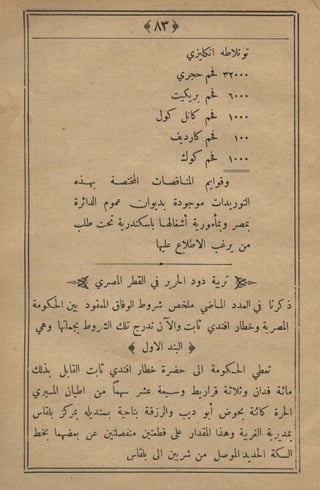 ﴿ ٨٣ ﴾
تونلاطه انكليزي
٣٢٠٠٠ فحم حجري
٦٠٠٠ فحم بريكيت
١٠٠٠ فحم كانل كول
١٠٠ فحم كارديف
١٠٠٠ فحم كوك
وقوايم المناقصات المختصة بهذه
التوريدات موجودة بديوان عموم الدائرة
بمصر وبمأمورية أشغالها باسكندرية تحت طلب
من يرغب الاطلاع عليها
تربية دود الحرير في القطر المصري
ذكرنا في العدد الماضي ملخص شروط الوفاق المعقود بين الحكومة
المصرية وخطار افندي ثابت والآن ندرج تلك الشروط بجملتها وهي
﴿ البند الاول ﴾
تعطي الحكومة الى حضرة خطار افندي ثابت القابل بذلك
مائة فدان وثلاثة قراريط وسبعة عشر سهماً من اطيان الميري
الحرة كائنة بحوض أبو ديب والرزقة بناحية بسنديله بمركز بلقاس
بمديرية الغربية وهذا المقدار على قطعتين منفصلتين عن بعضهما بخط
السكة الحديد الموصل من شربين الى بلقاس